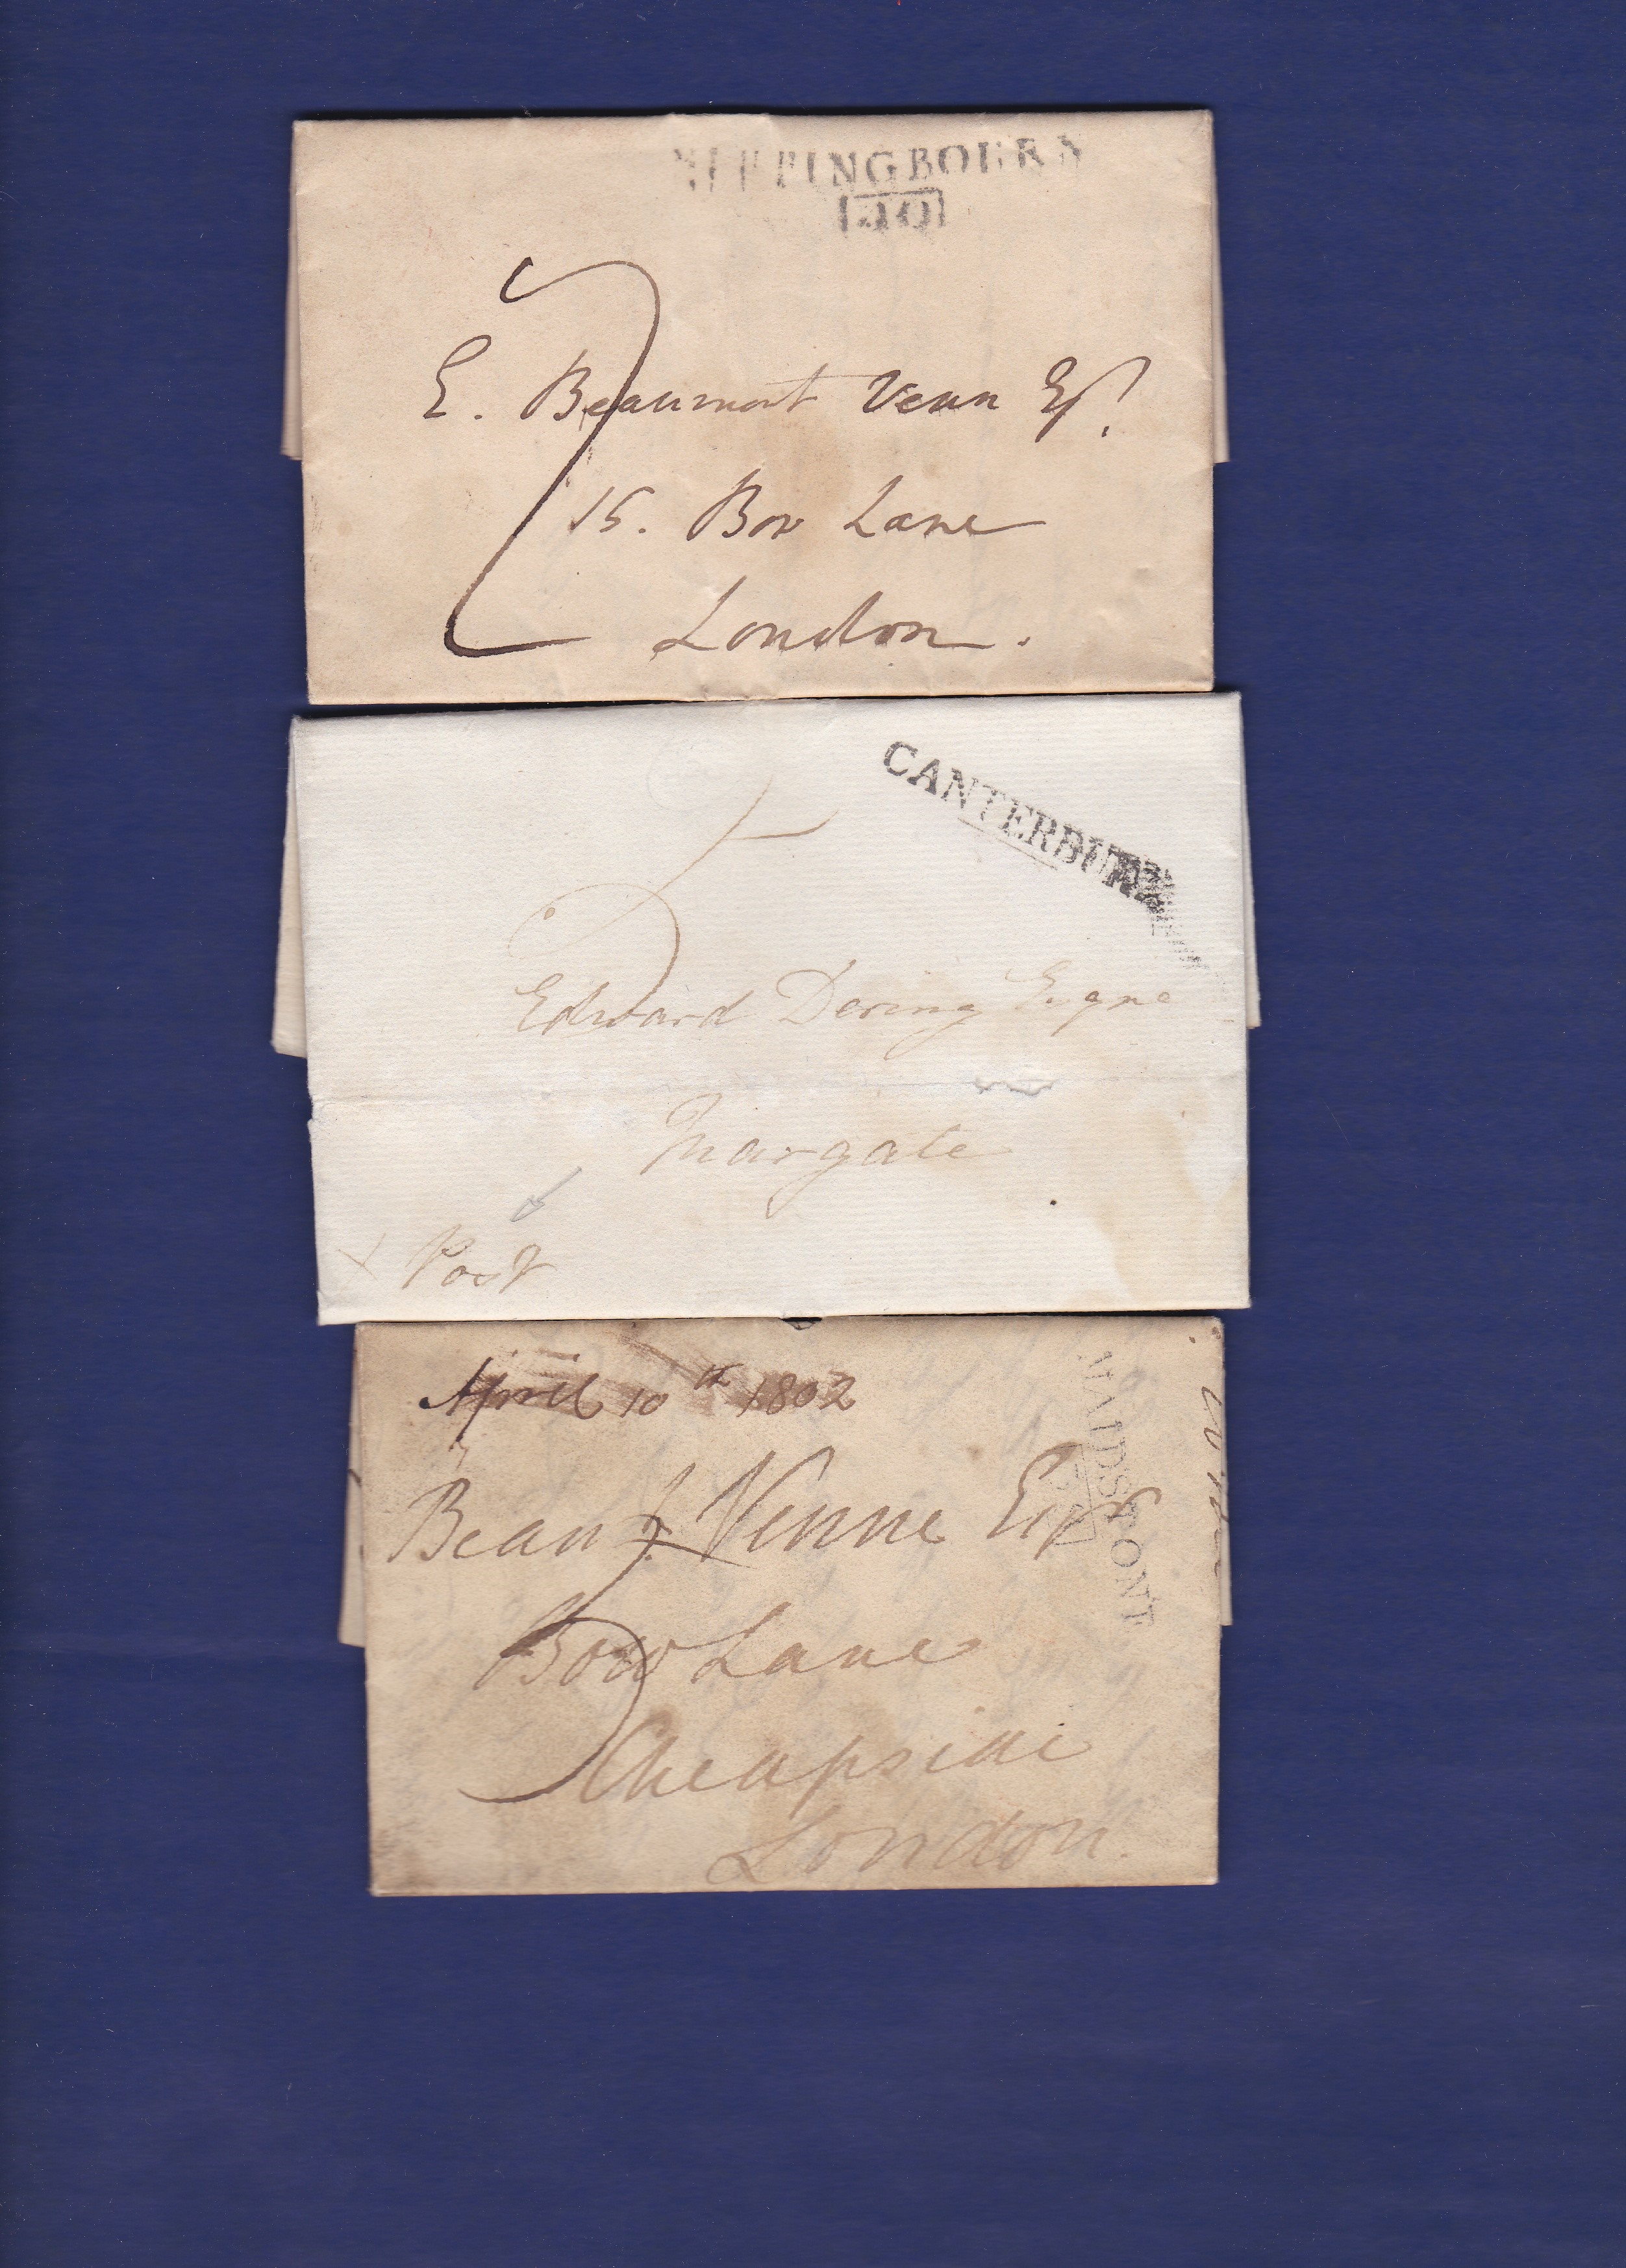 SITTINGBOURN
40
7
E. Beaumont Venn Esqr.
15. Bow Lane
London.
CANTERBURY
Edward Dering Esqre
Margate
Post
April 10th 1802
MAIDSTONE
Beau.t Venne Esqr
Bow Lane
Cheapside
London.